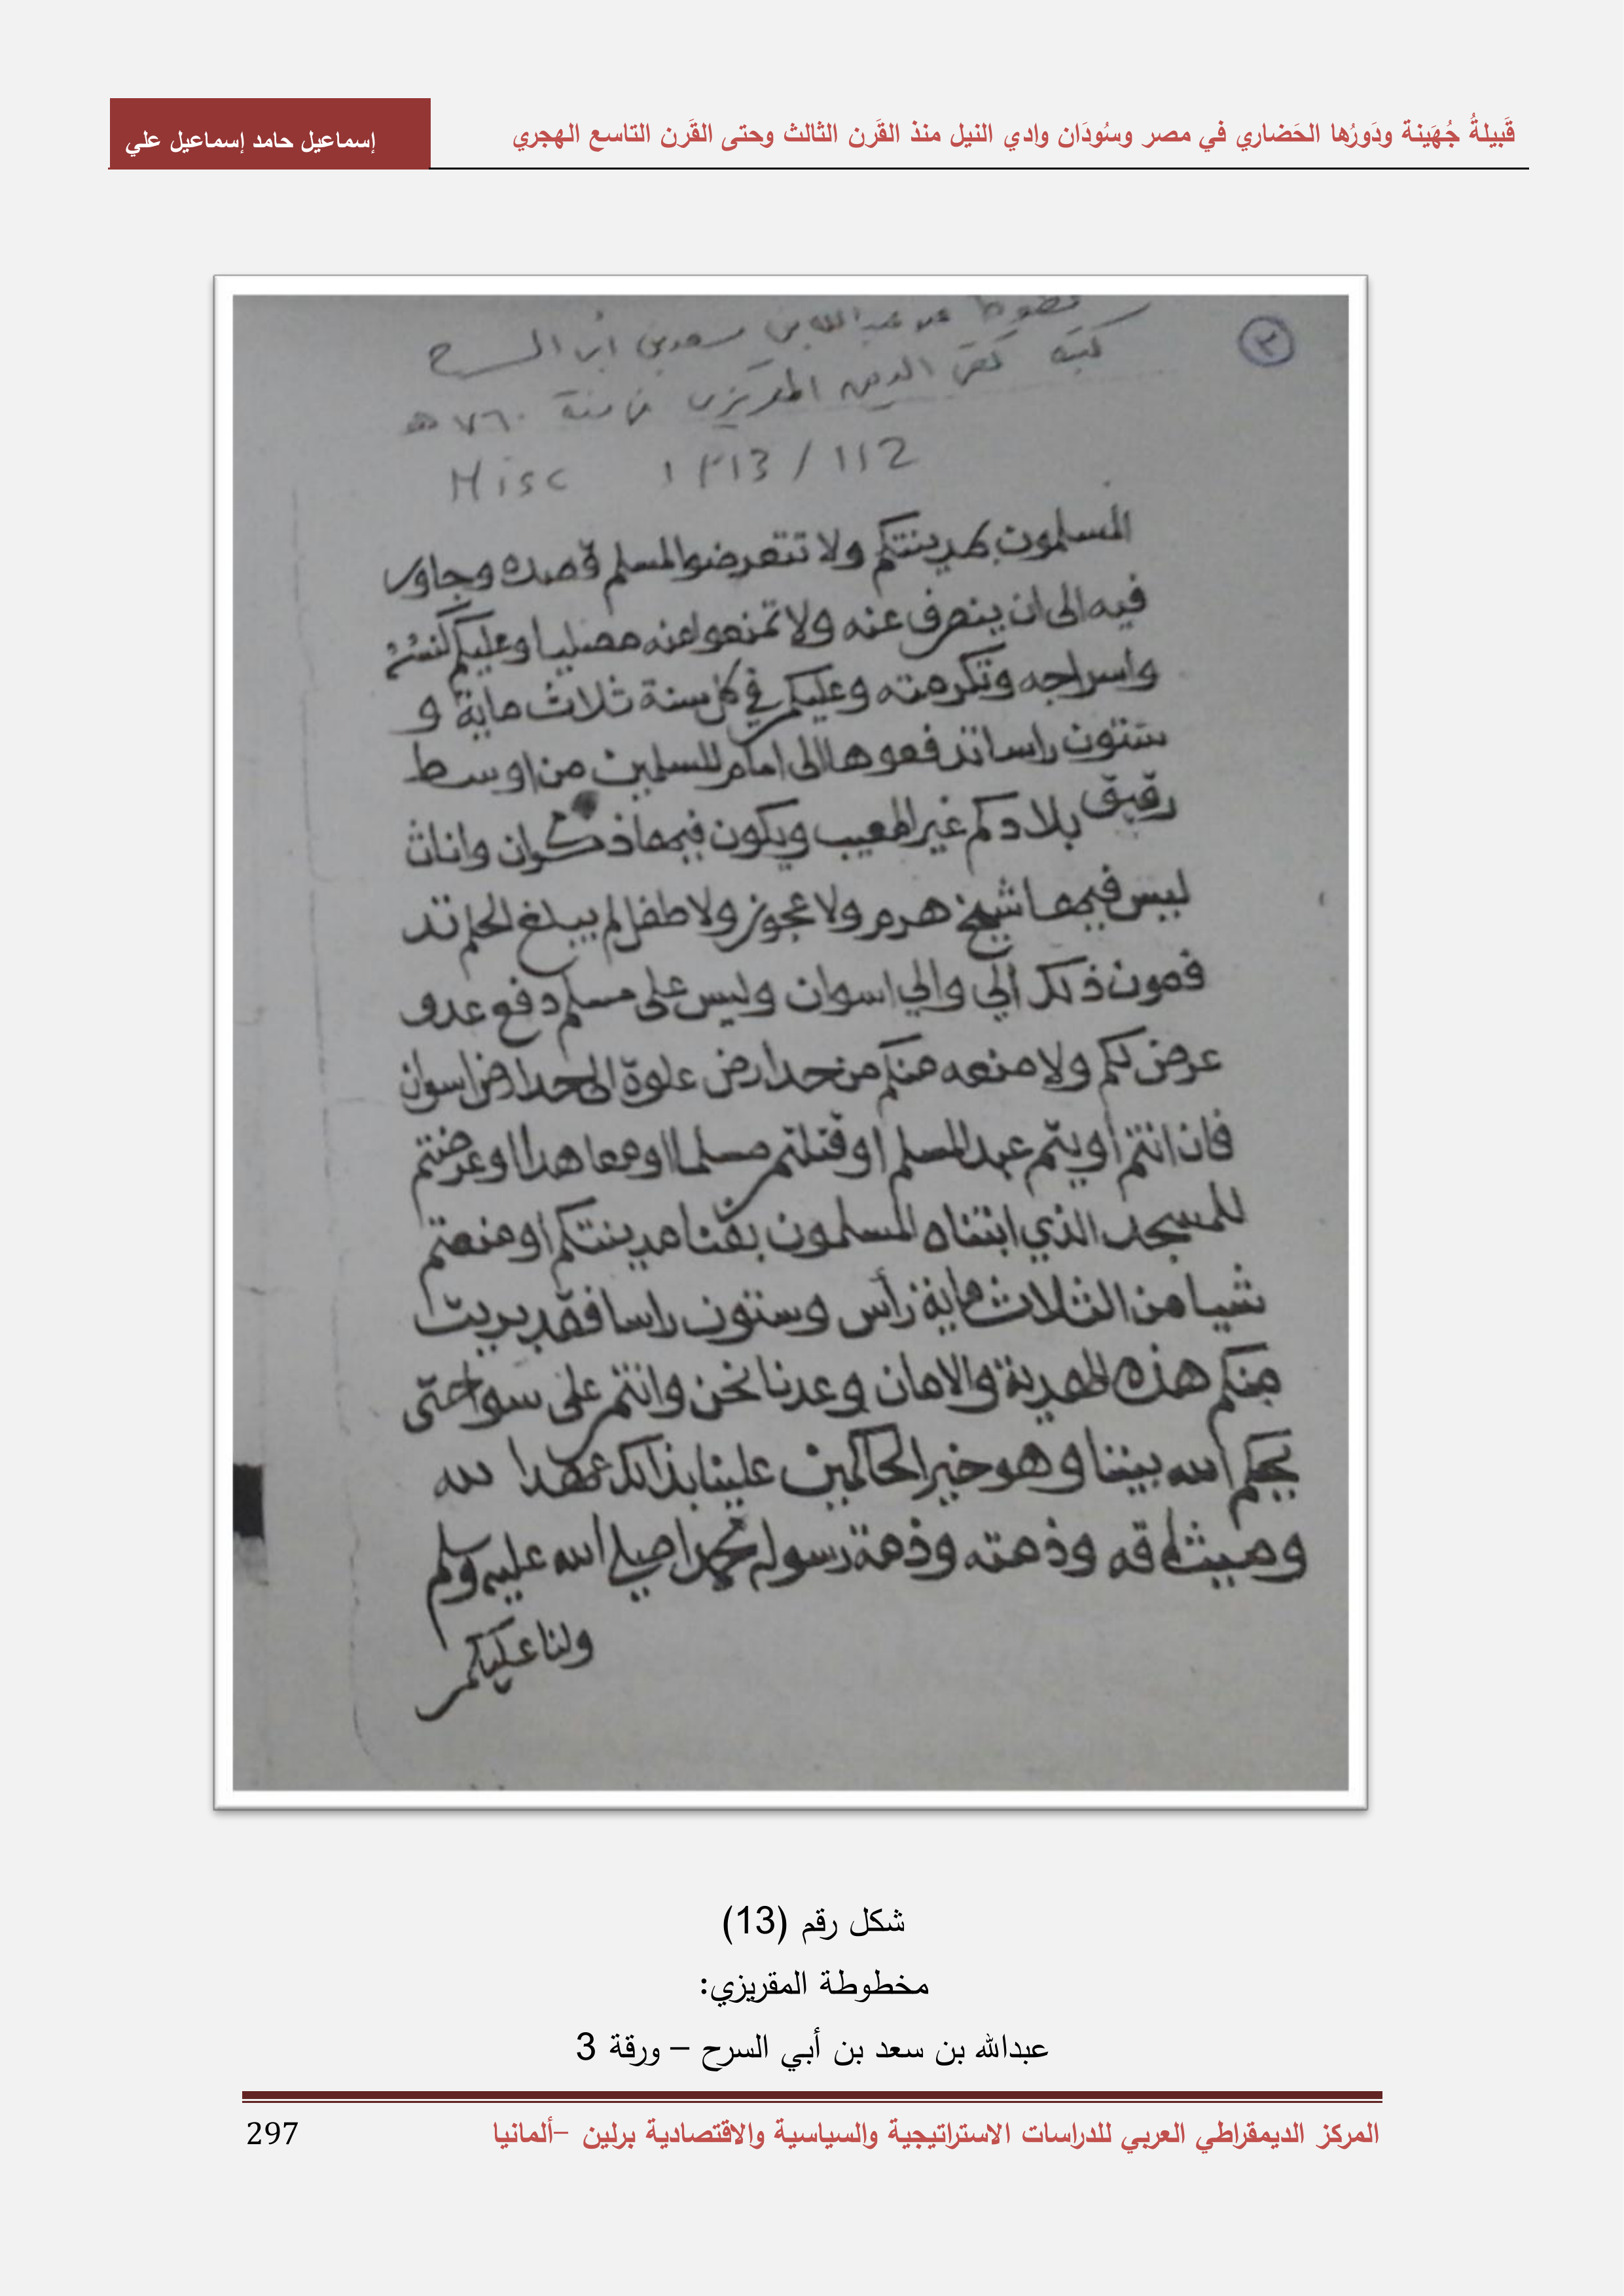 قَبيلةُ جُهَينة ودَورُها الحَضاري في مصر وسُودَان وادي النيل منذ القَرن الثالث وحتى القَرن التاسع الهجري
إسماعيل حامد إسماعيل علي
٣
عبدالله بن سعد بن أبي السرح
كتبه تقي الدين المقريزي في سنة ٧٦٠ هـ
Misc ١٢١3 / 112
المسلمون بمدينتكم ولا تتعرضوا لمسلم قصده وجاور
فيه الى ان ينصرف عنه ولا تمنعوا عنه مصليا وعليكم كنسه
واسراجه وتكرمته وعليكم في كل سنة ثلاث ماية و
ستون راسا تدفعوها الى امام المسلمين من اوسط
رقيق بلادكم غير المعيب ويكون فيها ذكران واناث
ليس فيها شيخ هرم ولا عجوز ولا طفل لم يبلغ الحلم تد
فعون ذلك الي والي اسوان وليس على مسلم دفع عدو
عرض لكم ولا منعه منكم من حد ارض علوة الى حد ارض اسوان
فان انتم اويتم عبد المسلم او قتلتم مسلما او معاهدا او عرضتم
للمسجد الذي ابتناه المسلمون بفنا مدينتكم او منعتم
شيا من الثلاث ماية رأس وستون راسا فقد بريت
منكم هذه الهدنة والامان وعدنا نحن وانتم على سوا حتى
يحكم الله بيننا وهو خير الحاكمين علينا بذلك عهدا لله
وميثاقه وذمته وذمة رسوله محمد صلى الله عليه وسلم
ولنا عليكم
شكل رقم (13)
مخطوطة المقريزي:
عبدالله بن سعد بن أبي السرح – ورقة 3
المركز الديمقراطي العربي للدراسات الاستراتيجية والسياسية والاقتصادية برلين –ألمانيا
297